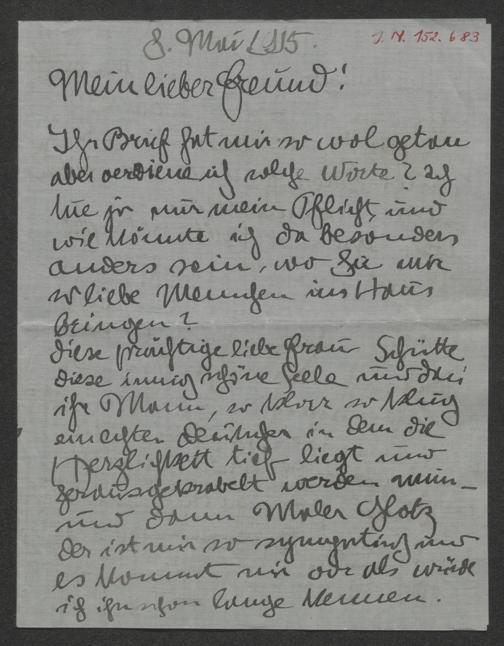 8. Mai 1915.
I. N. 152.683
Mein lieber Freund!
Ihr Brief hat mir so wol getan
aber verdiene ich solche Worte? ich
tue ja nur meine Pflicht, und
wie könnte ich da besonders
anders sein, wo Sie mir
so liebe Menschen ins Haus
bringen?
diese prächtige liebe Frau Schütte
diese innig schöne Seele und dann
ihr Mann, so klar so klug
ein echter Deutscher in dem die
Herzlichkeit tief liegt und
herausgekrabelt werden muss_
und dann Maler Glotz
der ist mir so sympatisch und
es kommt mir vor als würde
ich ihn schon lange kennen.